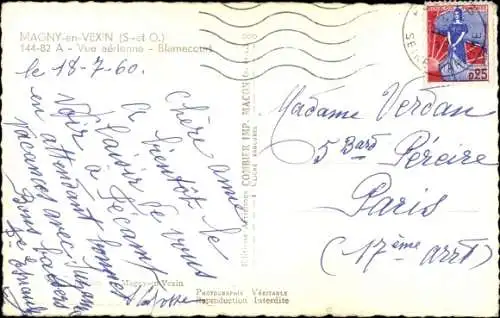 MAGNY-en-VEXIN (S-et-O.)
144-82 A - Vue aérienne - Blamecourt
le 18-7-60.
Chère amie
A bientôt le
plaisir de vous
voir à Fécamp
en attendant
vacances avec
Bons baisers
COMBIER IMP. MACON
Magny-en-Vexin
PHOTOGRAPHIE VÉRITABLE
Reproduction Interdite
0,25
Madame Verdan
5 Bard Péreire
Paris
(17ème arrt)